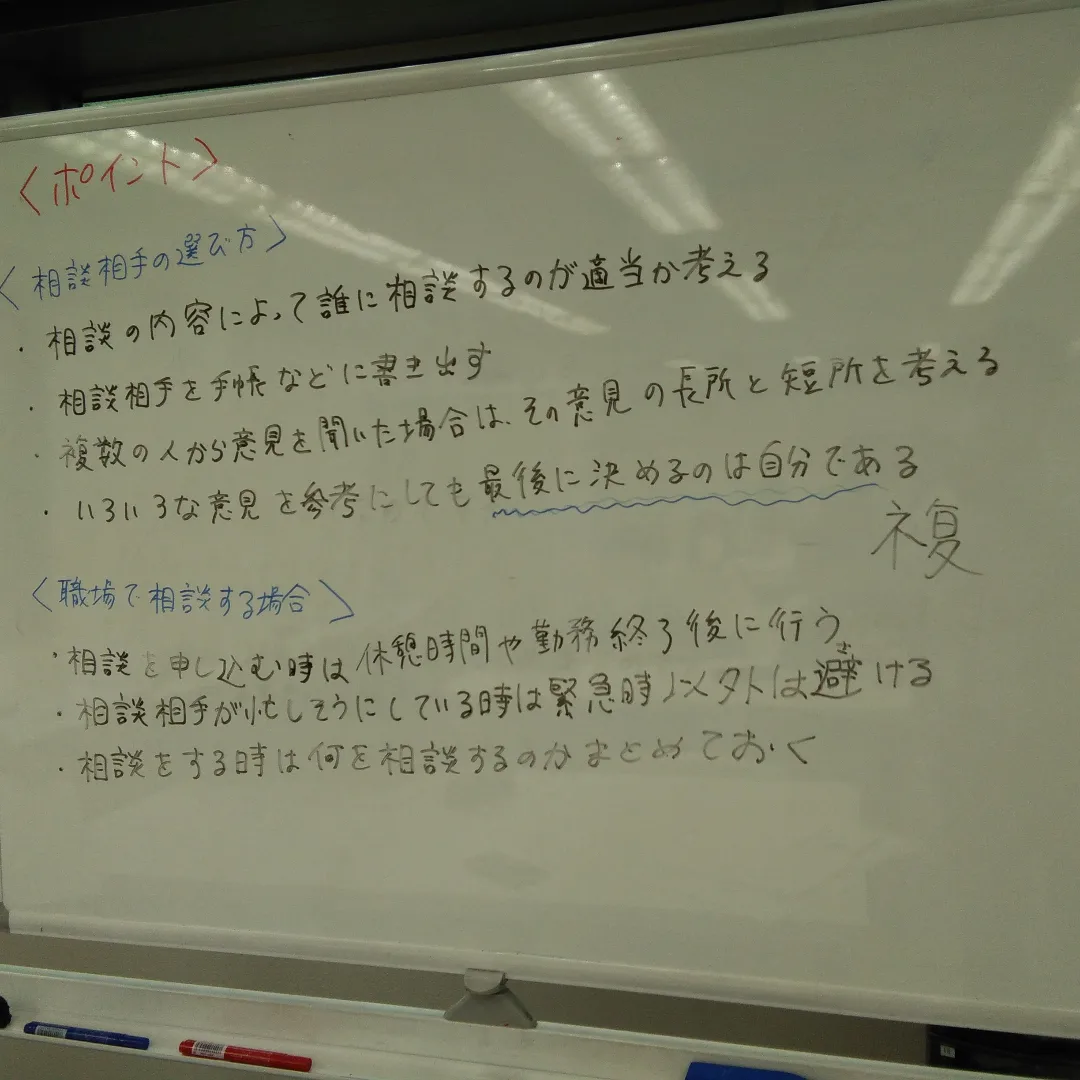 〈ポイント〉
〈相談相手の選び方〉
・相談の内容によって誰に相談するのが適当か考える
・相談相手を手帳などに書き出す
・複数の人から意見を聞いた場合は、その意見の長所と短所を考える
・いろいろな意見を参考にしても最後に決めるのは自分である
複
〈職場で相談する場合〉
・相談を申し込む時は休憩時間や勤務終了後に行う
さ
・相談相手が忙しそうにしている時は緊急時以外は避ける
・相談をする時は何を相談するのかまとめておく